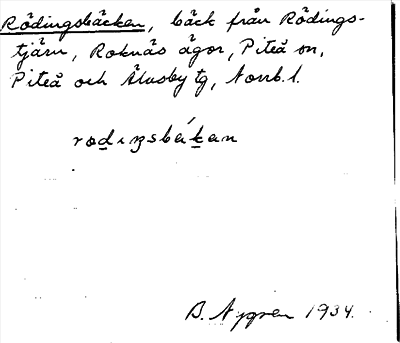 Rödingsbäcken, bäck från Rödings-
tjärn, Roknäs ägor, Piteå sn,
Piteå och Älvsby tg, Norrb. l.
B. Nygren 1934.